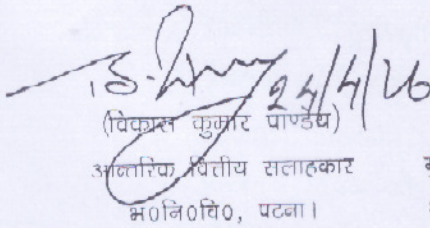 24/4/26
(विकास कुमार पाण्डेय)
आन्तरिक वित्तीय सलाहकार
भ0नि0वि0, पटना।